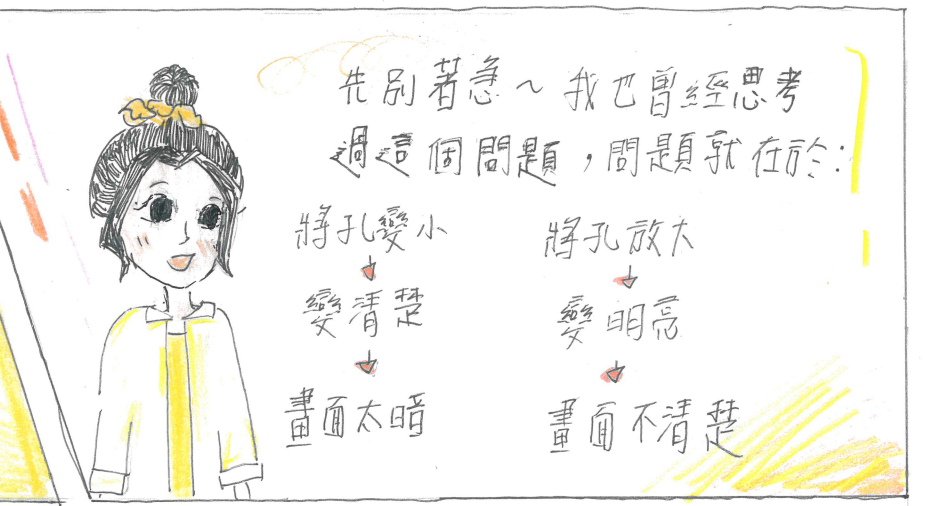 先別著急～我也曾經思考
過這個問題，問題就在於：
將孔變小
↓
變清楚
↓
畫面太暗
將孔放大
↓
變明亮
↓
畫面不清楚